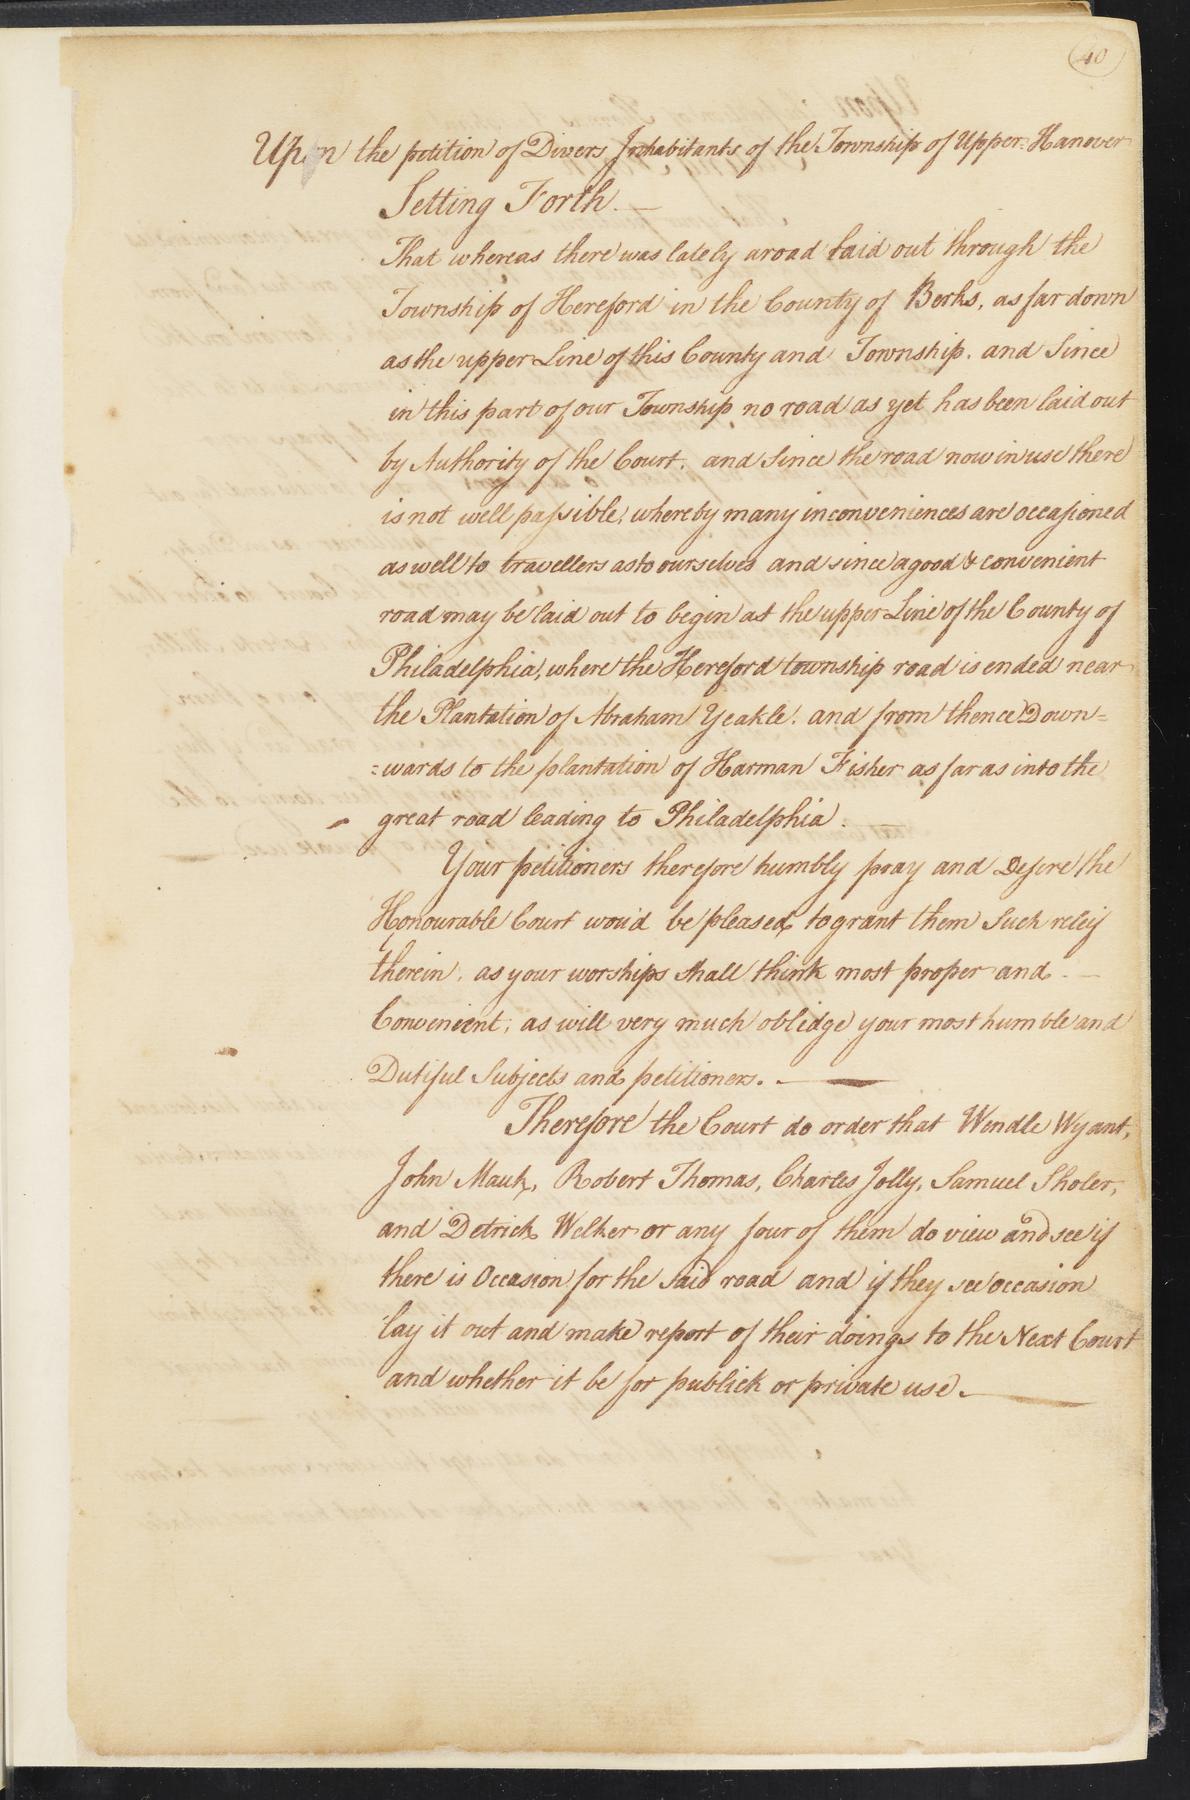 40
Upon the petition of Divers Inhabitants of the Township of Upper-Hanover
Setting Forth.—
That whereas there was lately a road laid out through the
Township of Hereford in the County of Berks, as far down
as the upper Line of this County and Township. and Since
in this part of our Township no road as yet has been laid out
by Authority of the Court. and Since the road now in use there
is not well passible, whereby many inconveniences are occasioned
as well to travellers as to ourselves and since a good & convenient
road may be laid out to begin at the upper Line of the County of
Philadelphia, where the Hereford township road is ended near
the Plantation of Abraham Yeakle. and from thence Down=
=wards to the plantation of Harman Fisher as far as into the
great road leading to Philadelphia.—
Your petitioners therefore humbly pray and Desire the
Honourable Court wou'd be pleased to grant them Such releif
therein. as your worships shall think most proper and —
Convenient; as will very much oblidge your most humble and
Dutiful Subjects and petitioners. —
Therefore the Court do order that Wendle Wyant,
John Mauk, Robert Thomas, Charles Jolly, Samuel Sholer,
and Detrick Welker or any four of them do view and see if
there is Occasion for the said road and if they see occasion
lay it out and make report of their doings to the Next Court
and whether it be for publick or private use. —